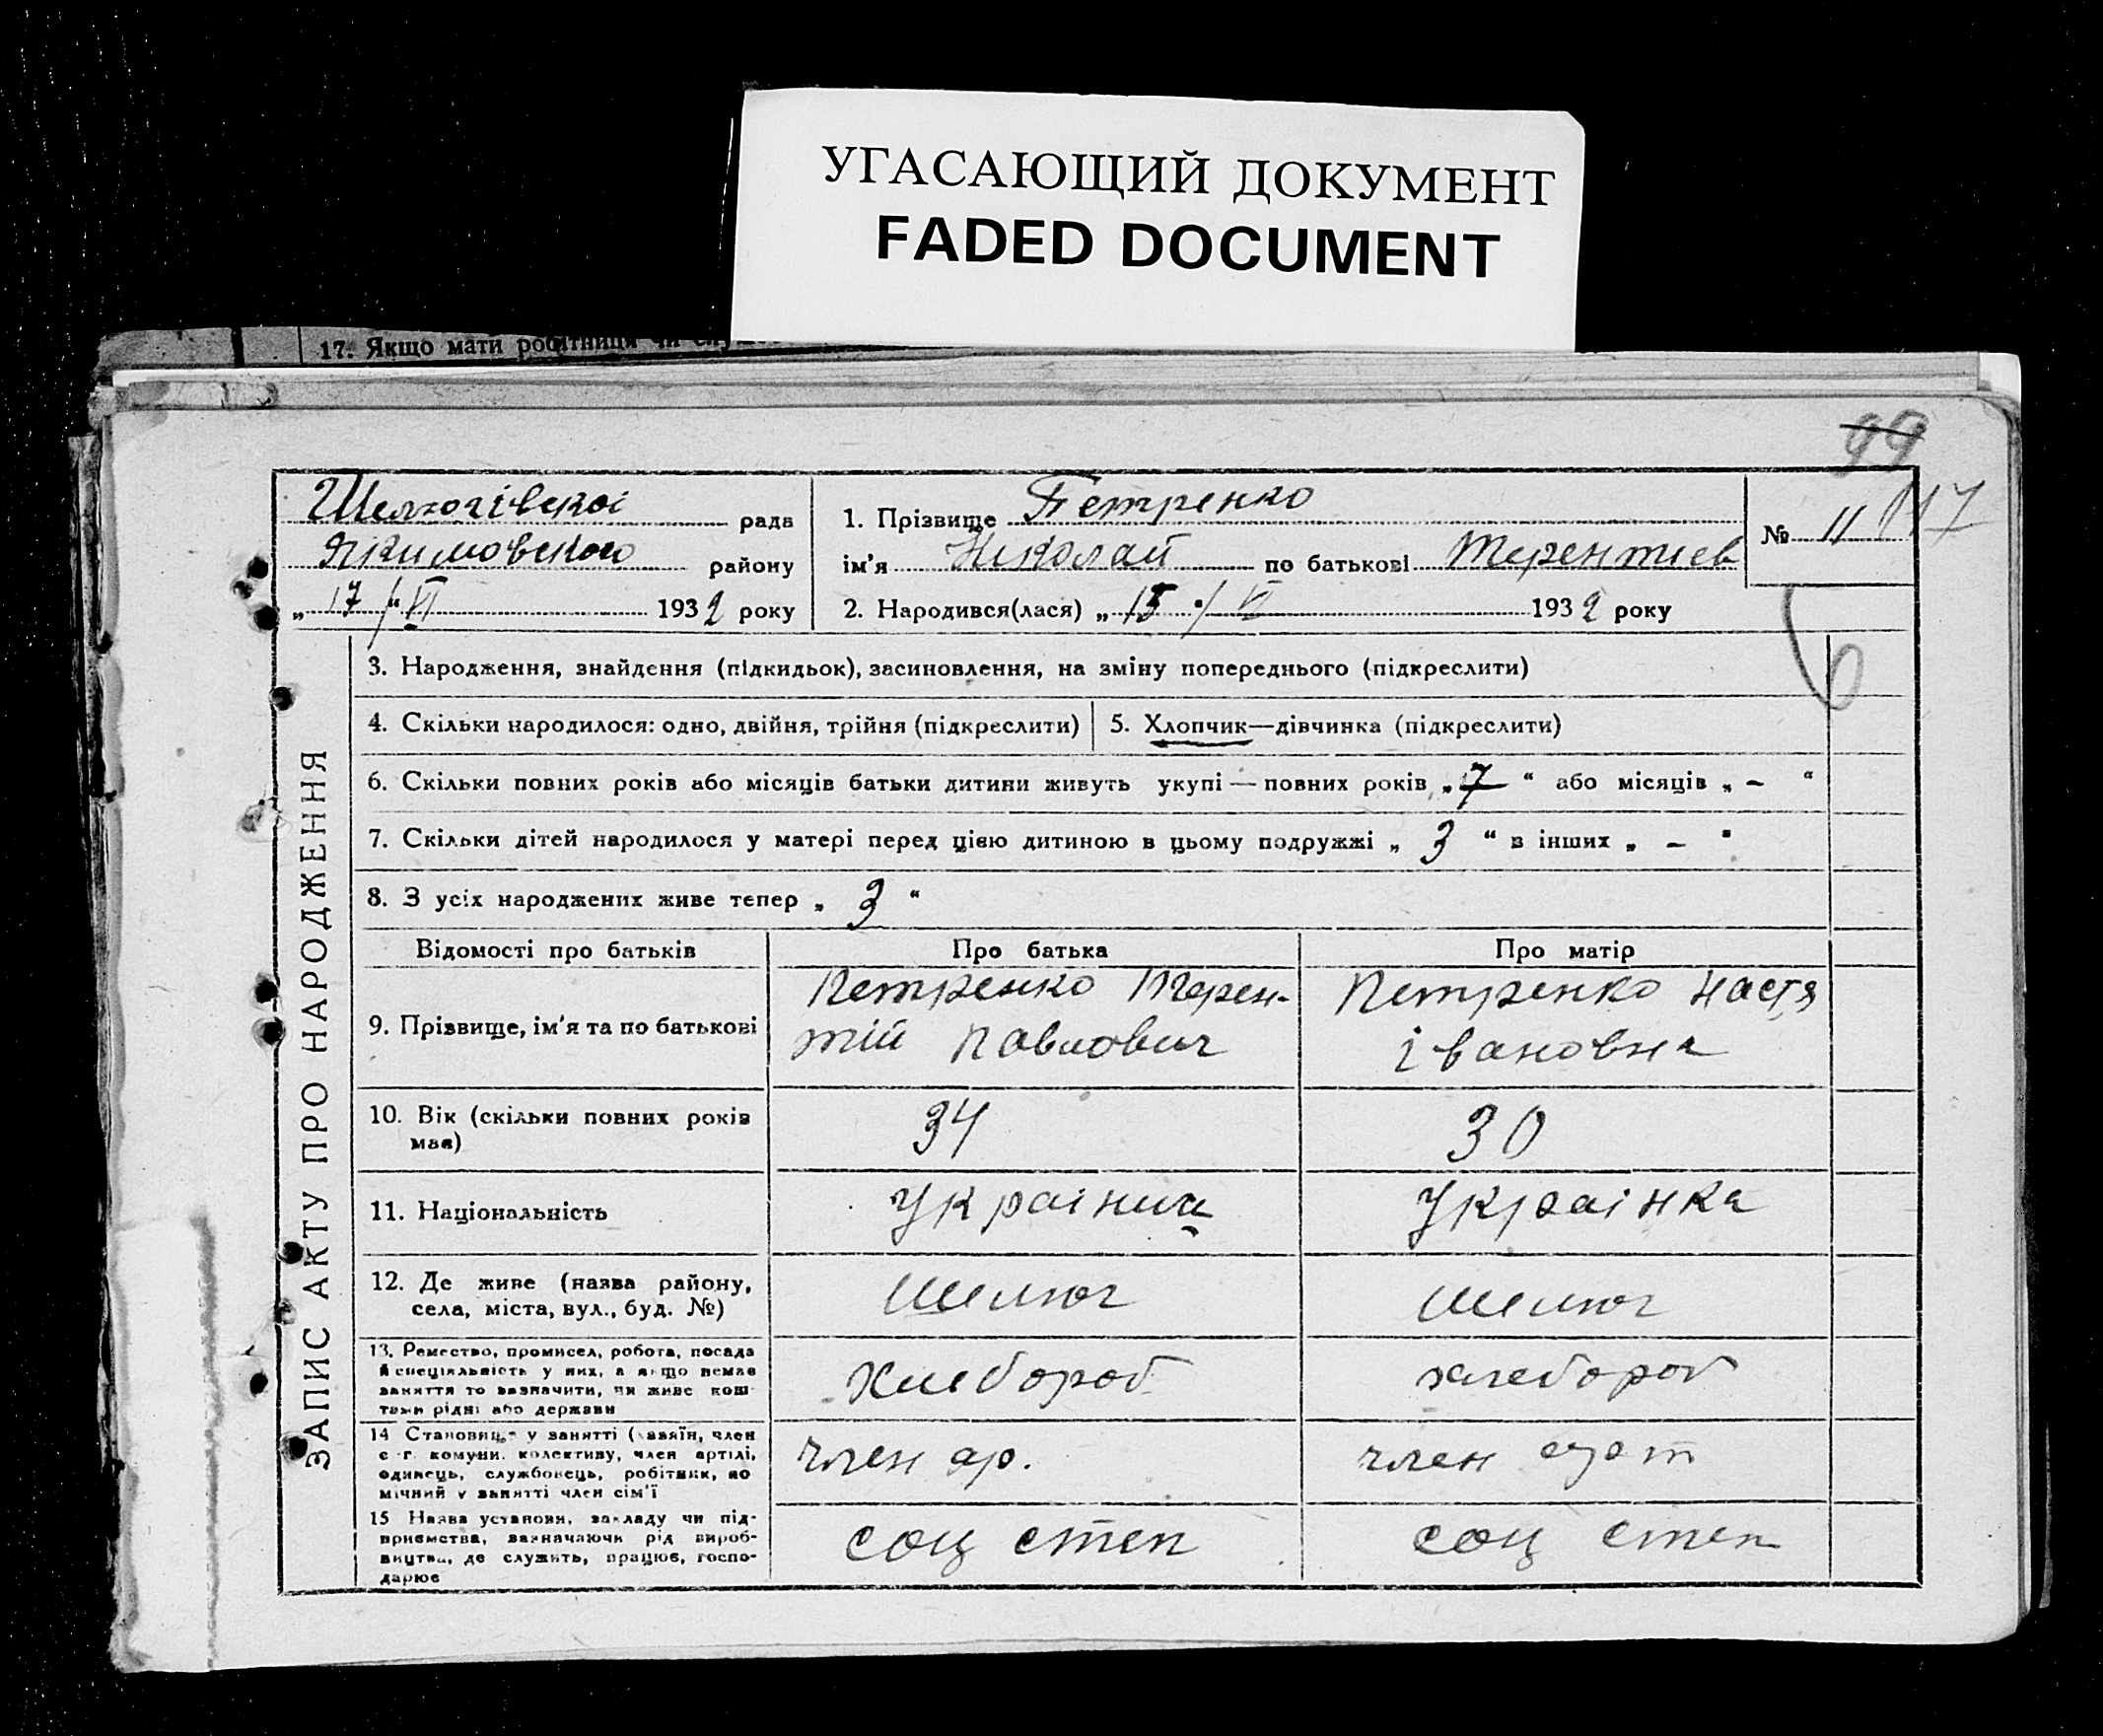 УГАСАЮЩИЙ ДОКУМЕНТ
FADED DOCUMENT
17. Якщо мати робітниця чи
99
117
Шелюгівскоі рада
Якимовского району
„ 17 “ / VI 1932 року
1. Прізвище Петренко
ім'я Николай по батькові Терентиев
№ 11
2. Народився(лася) „ 15 “ / VI 1932 року
ЗАПИС АКТУ ПРО НАРОДЖЕННЯ
3. Народження, знайдення (підкидьок), засиновлення, на зміну попереднього (підкреслити)
4. Скільки народилося: одно, двійня, трійня (підкреслити)
5. Хлопчик—дівчинка (підкреслити)
6. Скільки повних років або місяців батьки дитини живуть укупі — повних років „ 7 “ або місяців „ – “
7. Скільки дітей народилося у матері перед цією дитиною в цьому подружжі „ 3 “ в інших „ – “
8. З усіх народжених живе тепер „ 3 “
Відомості про батьків Про батька Про матір
9. Прізвище, ім'я та по батькові
Петренко Терен-
тій Павлович
Петренко Настя
івановна
10. Вік (скільки повних років
має)
34
30
11. Національність
Украіниц
Украінка
12. Де живе (назва району,
села, міста, вул., буд. №)
Шелюг
Шелюг
13. Ремество, промисел, робота, посада
й спеціяльність у них, а якщо немає
заняття то зазначити, чи живе кош
тами рідні або держави
Хлебороб
хлебороб
14 Становище у занятті (хазяїн, член
с-г. комуни, колективу, член артілі,
одинець, службовець, робітник, по
мічний у занятті член сім'ї
член ар.
член
15 Назва установи, закладу чи під-
приємства, зазначаючи рід вироб-
ництва, де служить, працює, госпо-
дарює
соц степ
соц степ